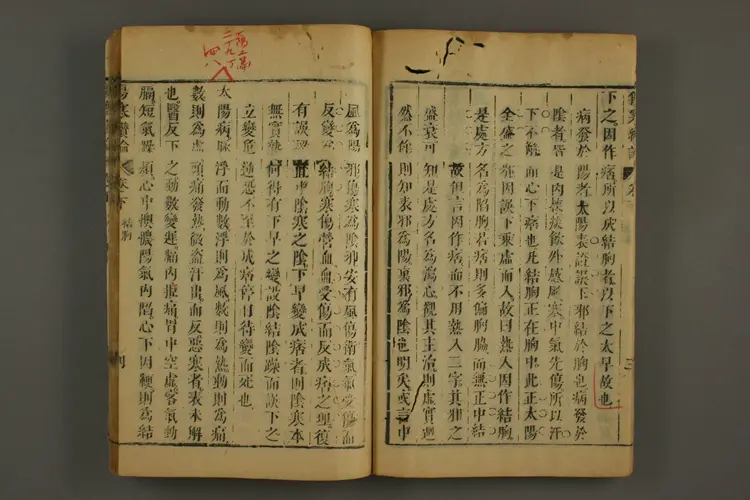 下之因作痞所以成結胸者以下之太早故也
病發於陽者太陽表證誤下邪結於胸也病發於
陰者皆是內挾痰飲外感風寒中氣先傷所以汗
下不解而心下痞也此結胸正在胸中此正太陽
全盛之邪因誤下乘虛而入故曰熱入因作結胸
是處方名為陷胸若痞則多偏胸脇而無正中結
故但言因作痞而不用熱入二字其邪之
盛衰可知是處方名為瀉心觀其主治則虛實逈
然不侔則知表邪為陽裏邪為陰也明矣或言中
風為陽邪傷寒為陰邪安有風傷衛氣氣受傷而
反變為結胸寒傷營血血受傷而反成痞之理復
有誤下直中陰寒之陰下早變成痞者則陰寒本
無實熱何得有下早之變設陰結陰躁而誤下之
立變危逈恐不至於成痞停日待變而死也
太陽病脉浮而動數浮則為風數則為熱動則為痛
數則為虛頭痛發熱微盜汗出而反惡寒者表未解
也醫反下之動數變遲膈內拒痛胃中空虛客氣動
膈短氣躁煩心中懊憹陽氣內陷心下因鞕則為結
傷寒纘論
卷下
結胸
二十九丁
四八